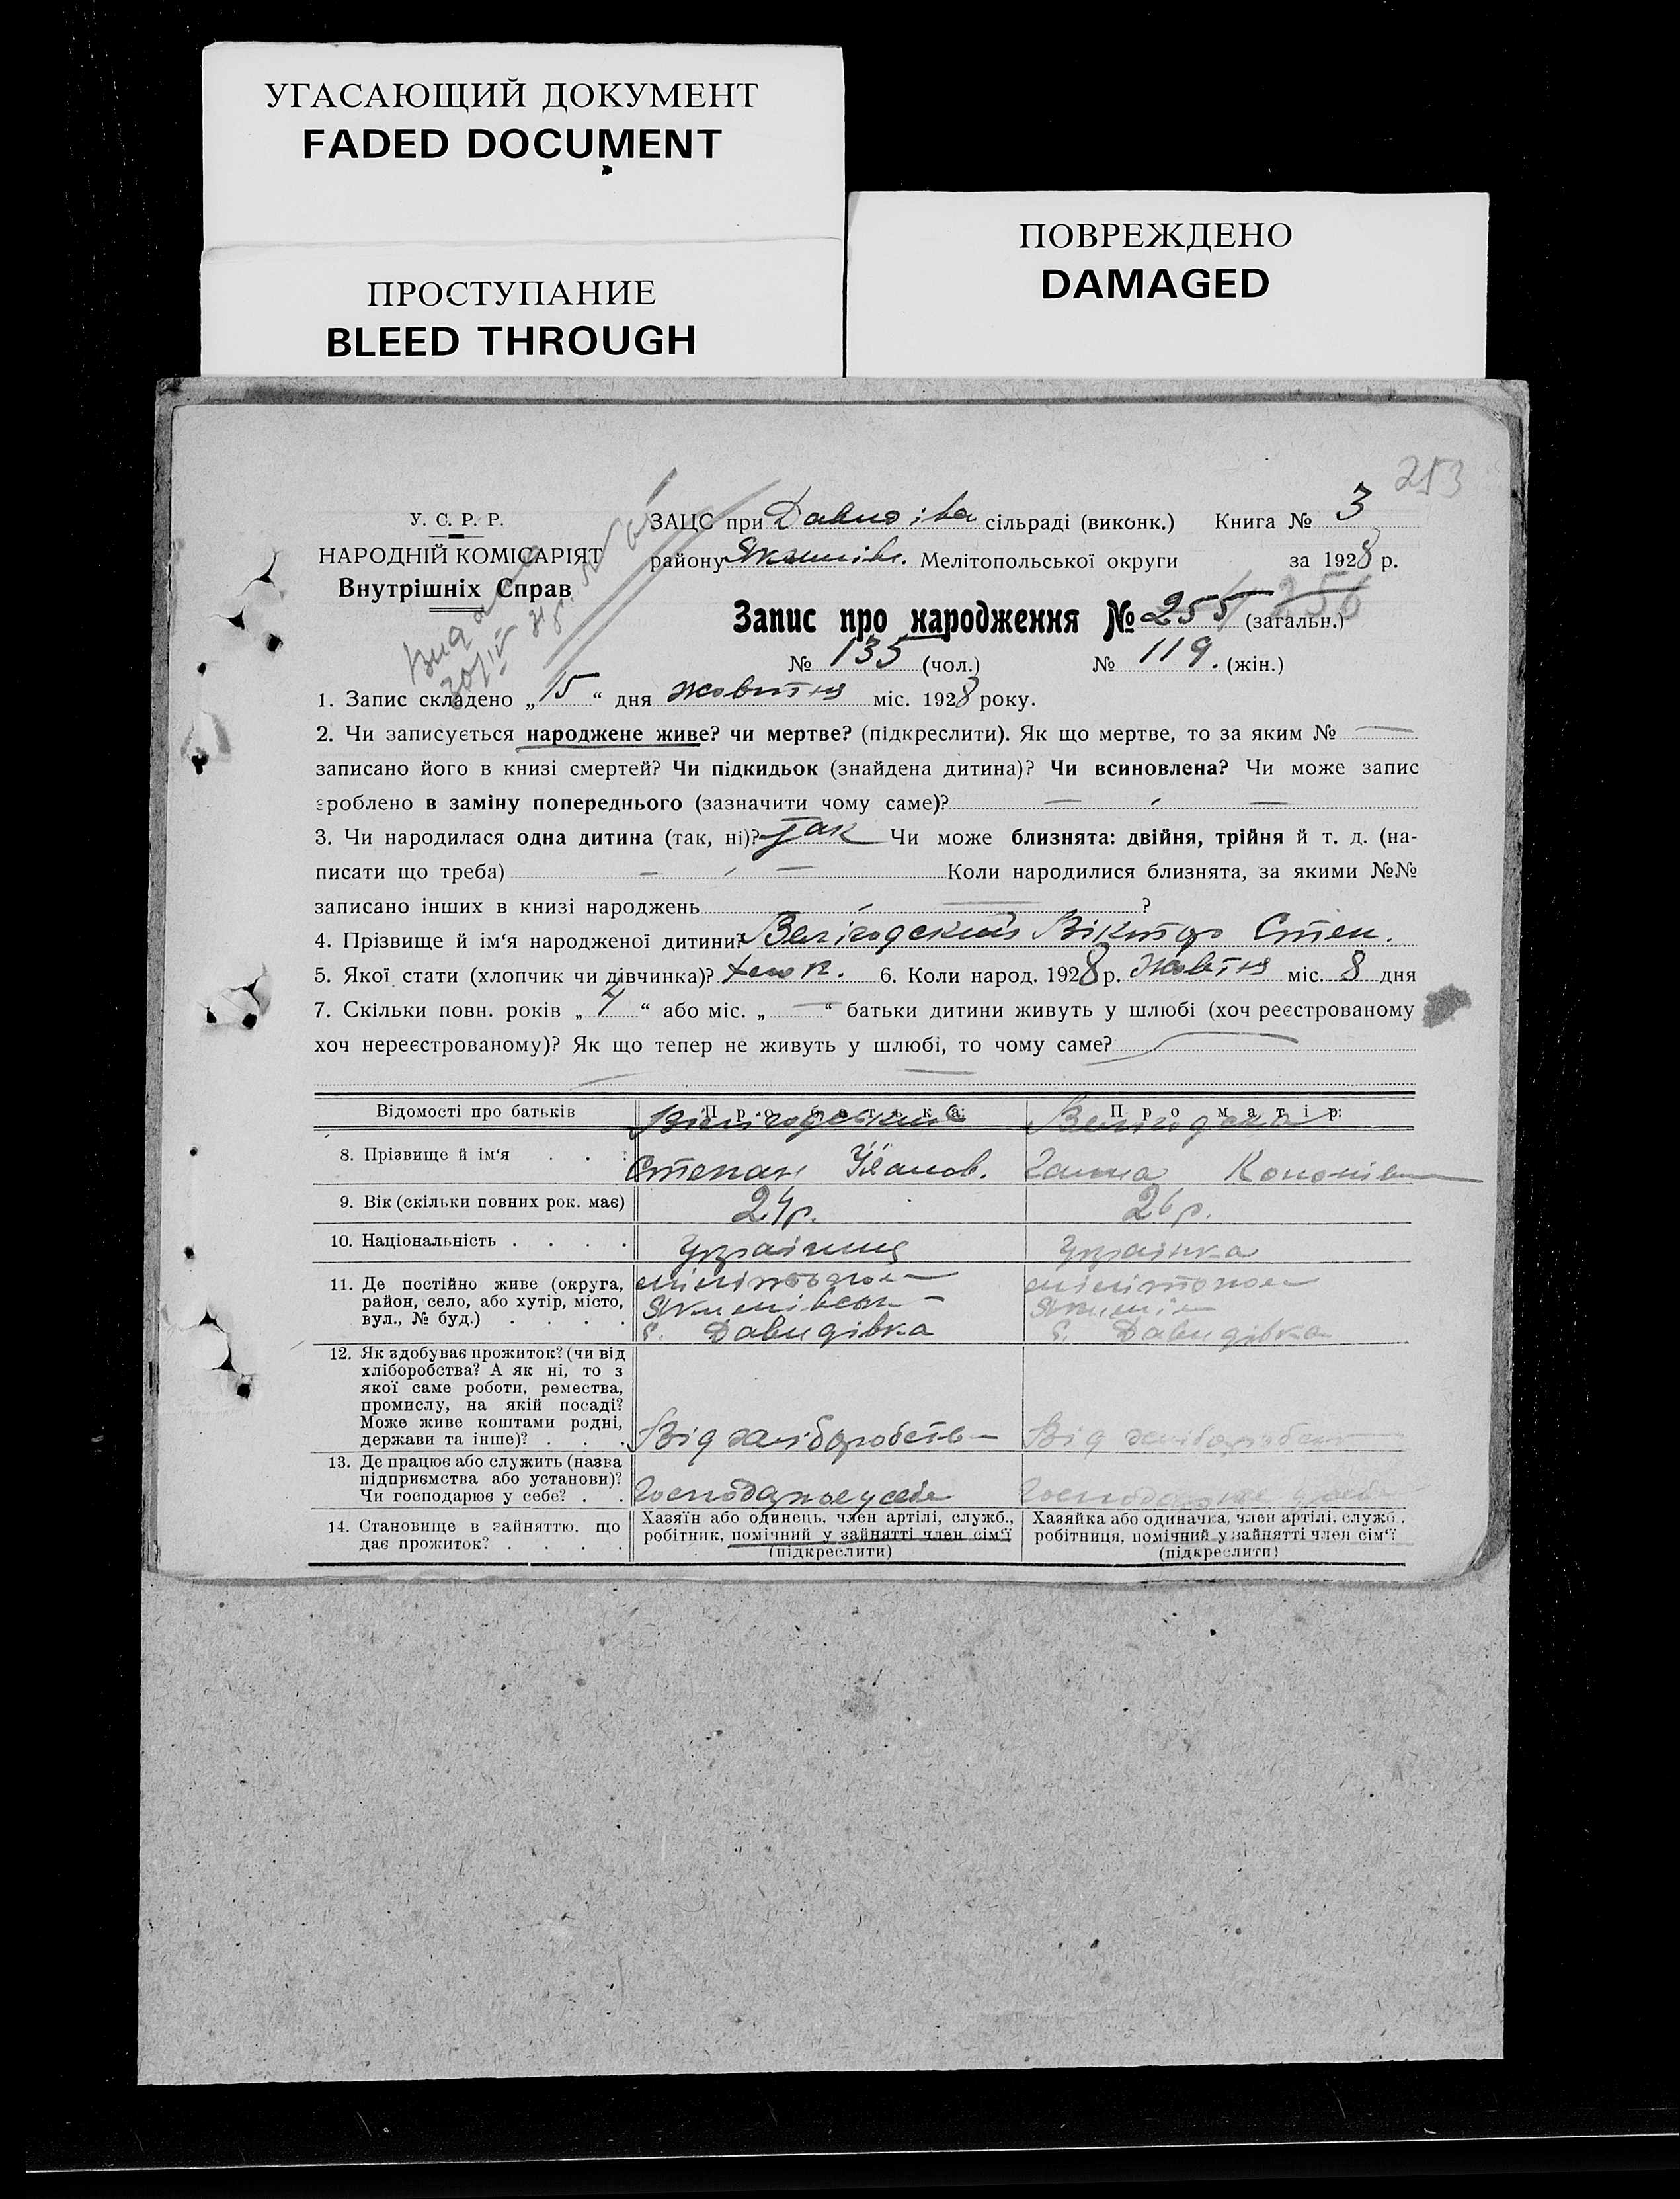 УГАСАЮЩИЙ ДОКУМЕНТ
FADED DOCUMENT
ПРОСТУПАНИЕ
BLEED THROUGH
ПОВРЕЖДЕНО
DAMAGED
253
У. С. Р. Р.
НАРОДНІЙ КОМІСАРІЯТ
Внутрішніх Справ
ЗАЦС при сільраді (виконк.) Книга № 3
району Мелітопольської округи за 1928 р.
Запис про народження № 255 256 (загальн.)
№ 135 (чол.) № 119. (жін.)
1. Запис складено „15“ дня жовтня міс. 1928 року.
2. Чи записується народжене живе? чи мертве? (підкреслити). Як що мертве, то за яким № —
записано його в книзі смертей? Чи підкидьок (знайдена дитина)? Чи всиновлена? Чи може запис
зроблено в заміну попереднього (зазначити чому саме)? — —
3. Чи народилася одна дитина (так, ні)? Так Чи може близнята: двійня, трійня й т. д. (на-
писати що треба) — — Коли народилися близнята, за якими №№
записано інших в книзі народжень — ?
4. Прізвище й ім‘я народженої дитини? Велігодский Віктор Степ.
5. Якої стати (хлопчик чи дівчинка)? хлоп. 6. Коли народ. 1928 р. Жовтня міс. 8 дня
7. Скільки повн. років „4“ або міс. „—“ батьки дитини живуть у шлюбі (хоч реєстрованому
хоч нереєстрованому)? Як що тепер не живуть у шлюбі, то чому саме? —
Відомості про батьків Про батька: Про матір:
Велігодский Велігодска
8. Прізвище й ім‘я . . . Степан Ганна
9. Вік (скільки повних рок. має) 24 р. 26 р.
10. Національність . . . . Українец Українка
11. Де постійно живе (округа,
район, село, або хутір, місто,
вул., № буд.) . . . .
мілітопол мілітопол
Якимівськ Якимів
с. Давидівка с. Давидівка
12. Як здобуває прожиток? (чи від
хліборобства? А як ні, то з
якої саме роботи, ремества,
промислу, на якій посаді?
Може живе коштами родні,
держави та інше)? . . .
Від хліборобств Від хліборобст
13. Де працює або служить (назва
підприємства або установи)?
Чи господарює у себе? . .
Господарює у себе Господарює у себе
14. Становище в зайняттю, що
дає прожиток? . . . .
Хазяїн або одинець, член артілі, служб.,
робітник, помічний у зайнятті член сім‘ї
(підкреслити)
Хазяйка або одиначка, член артілі, служб.,
робітниця, помічний у зайнятті член сім‘ї
(підкреслити)